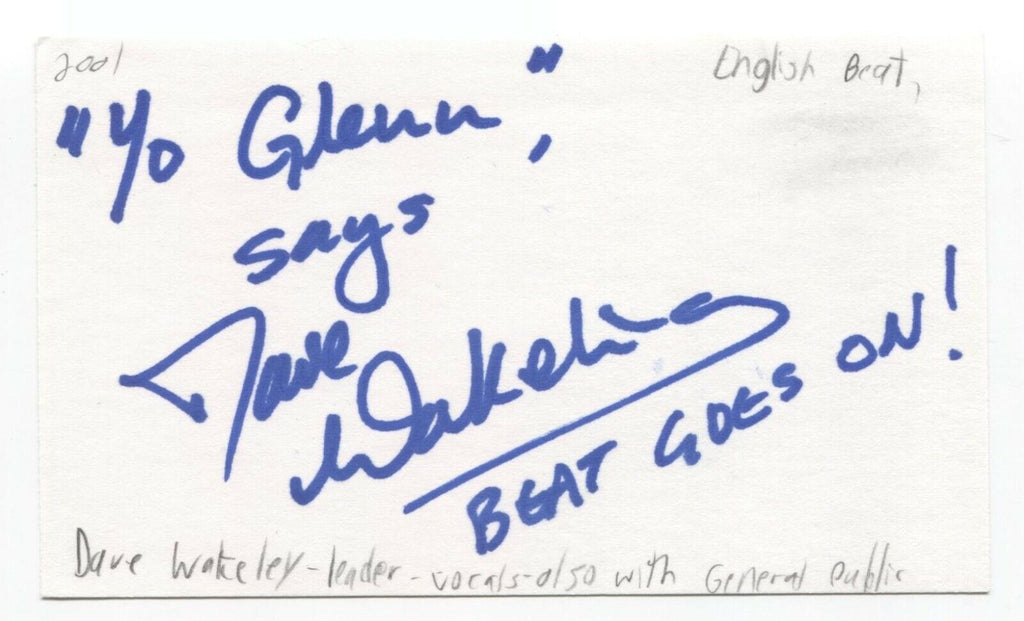 2001
English Beat,
"Yo Glenn,"
says
Dave
Wakeling
BEAT GOES ON!
Dave Wakeley-leader-vocals-also with General Public